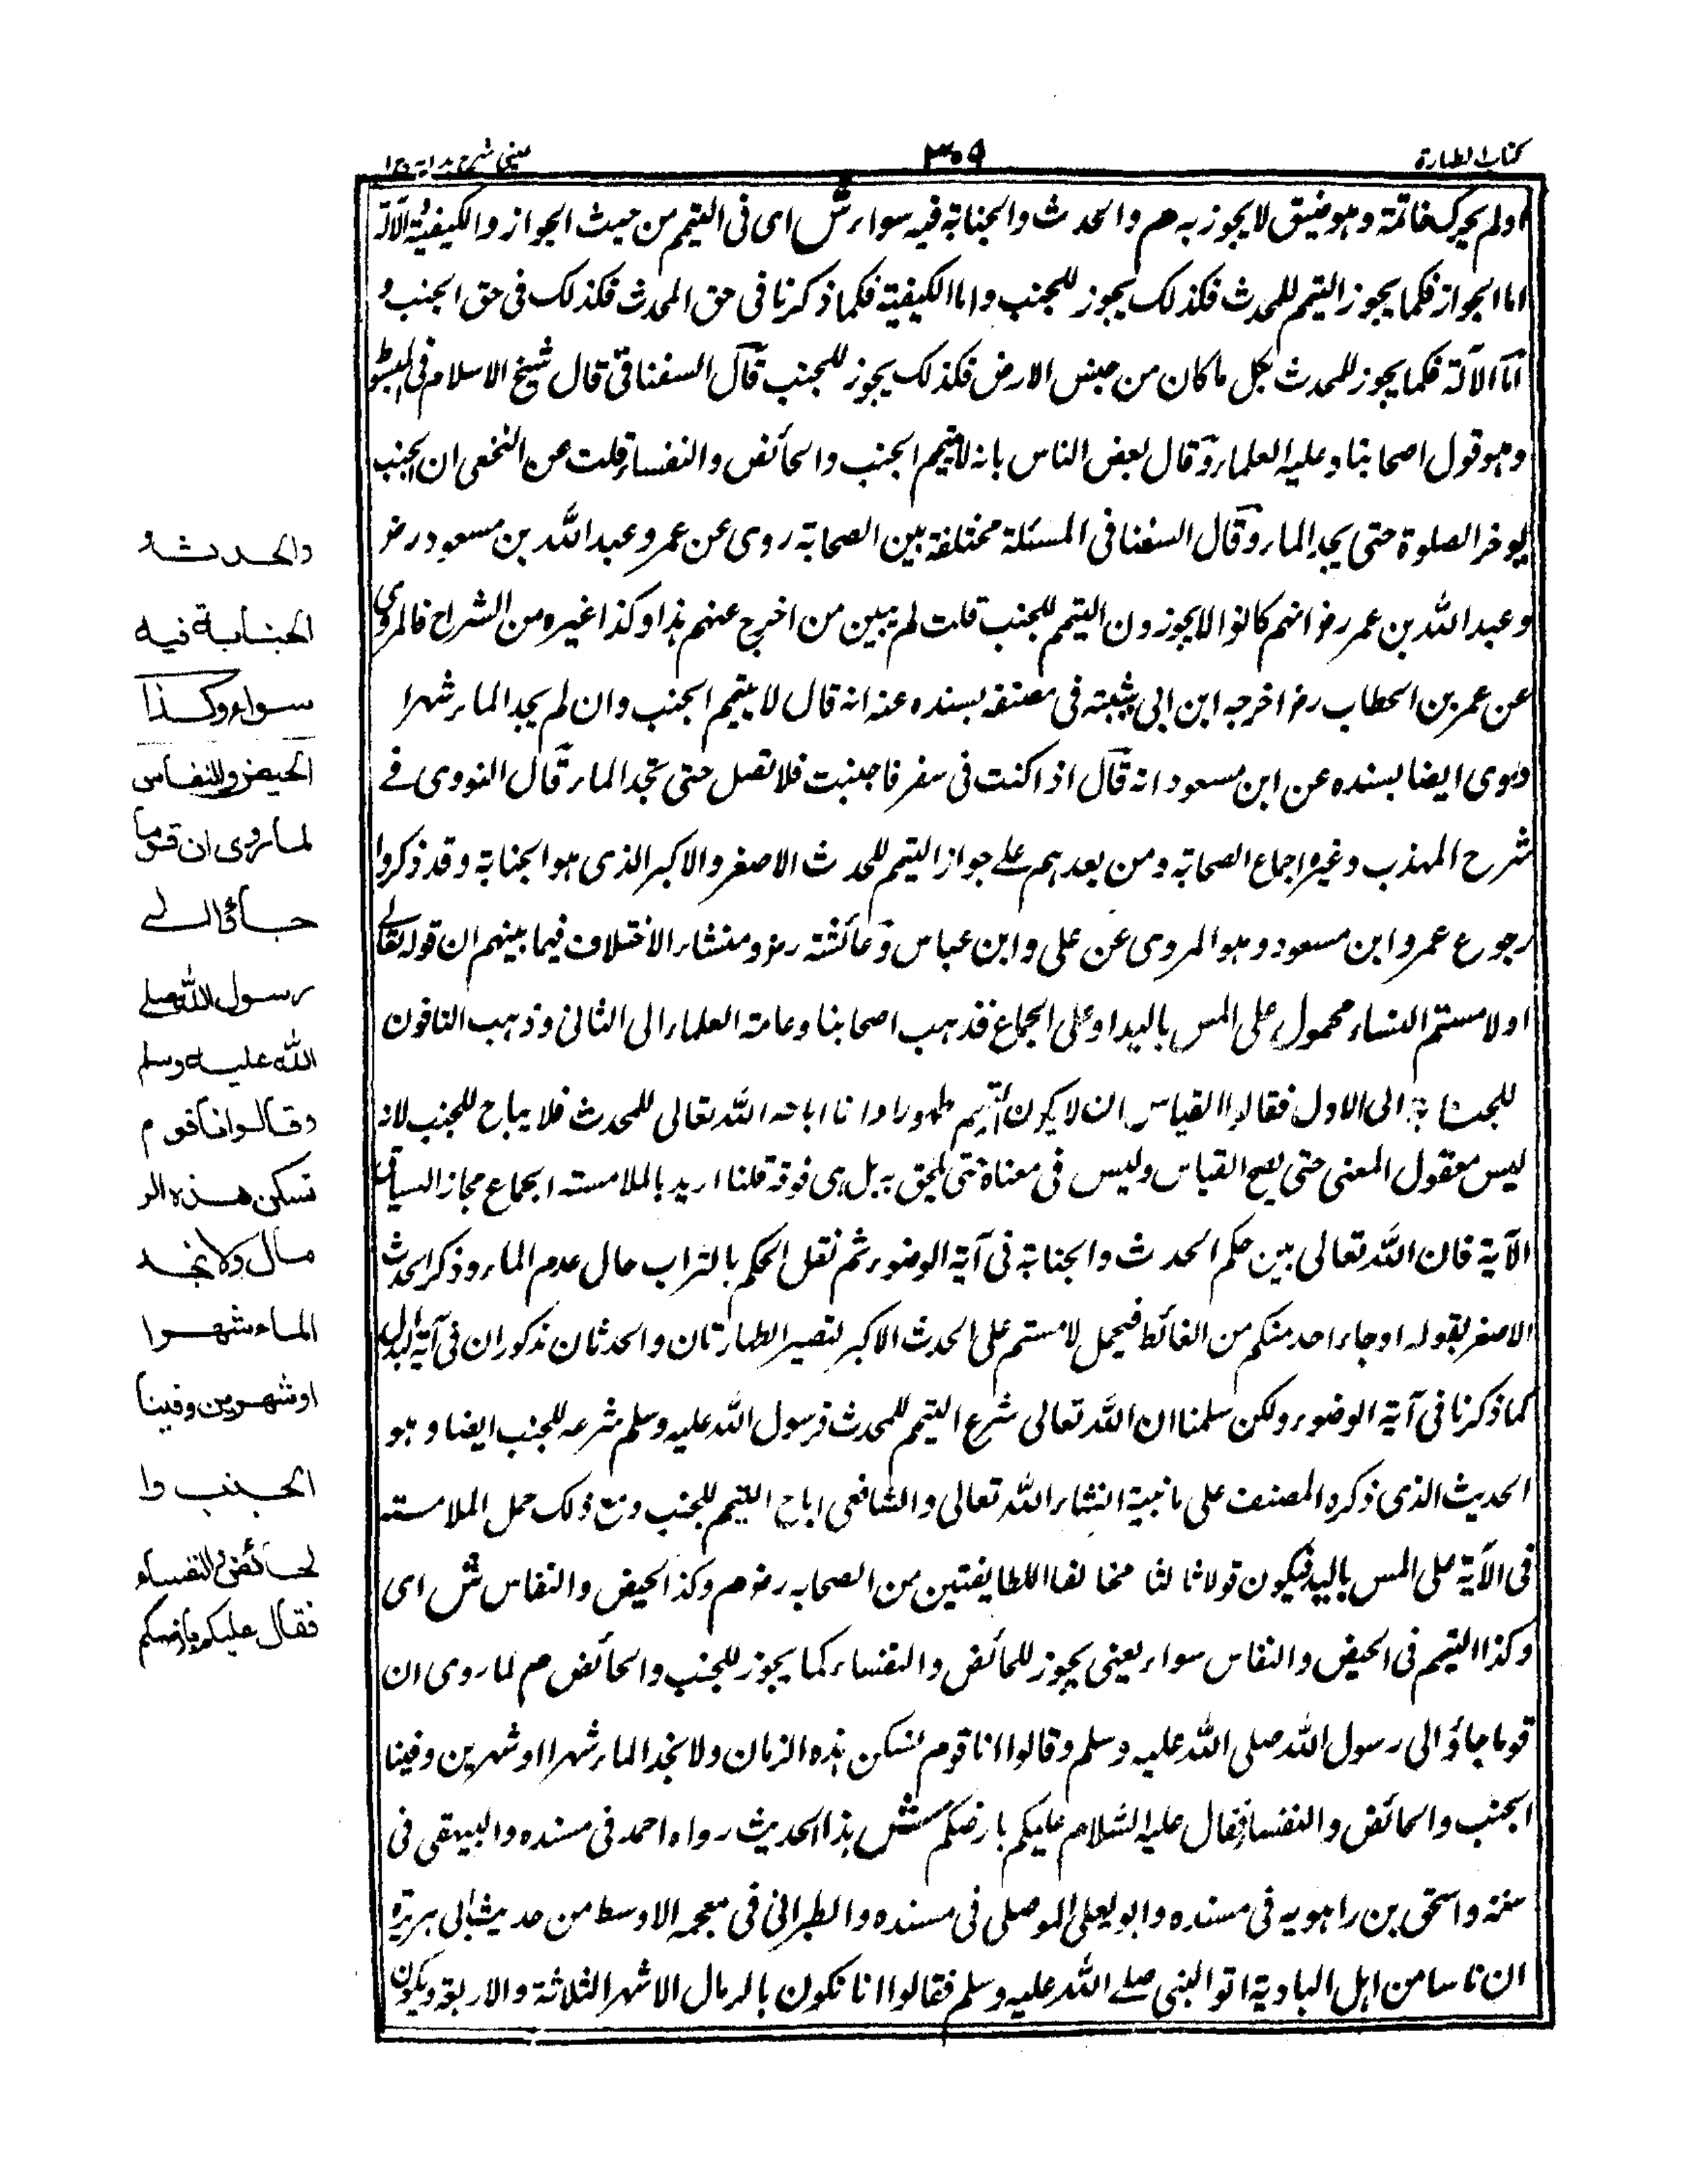 كتاب الطهارة
٣٠٩
عيني شرح هداية ج ١
اولم يحرك خاتمة وهو ضيق لا يجوز به م والحدث والجنابة فيه سواء ش اى فى التيمم من حيث الجواز والكيفية والآلة
اما الجواز فكما يجوز التيمم للمحدث فكذلك يجوز للجنب واما الكيفية فكما ذكرنا فى حق المحدث فكذلك فى حق الجنب و
اما الآلة فكما يجوز للمحدث بكل ما كان من جنس الارض فكذلك يجوز للجنب قال السغناقى قال شيخ الاسلام فى المبسوط
وهو قول اصحابنا وعليه العلماء وقال بعض الناس بانه لا يتيمم الجنب والحائض والنفساء قلت عن النخعى ان الجنب
يوخر الصلوة حتى يجد الماء وقال السغناقى المسئلة مختلفة بين الصحابة روى عن عمر وعبد الله بن مسعود رض
وعبد الله بن عمر رض انهم كانوا لا يجوزون التيمم للجنب قلت لم يبين من اخرج عنهم هذا وكذا غيره من الشراح فالمروى
عن عمر بن الخطاب رض اخرجه ابن ابى شيبة فى مصنفه بسنده عنه انه قال لا يتيمم الجنب وان لم يجد الماء شهرا
وروى ايضا بسنده عن ابن مسعود انه قال اذا كنت فى سفر فاجنبت فلا تصل حتى تجد الماء قال النووى فے
شرح المهذب وغيره اجماع الصحابة ومن بعدهم علے جواز التيمم للحدث الاصغر والاكبر الذى هو الجنابة وقد ذكروا
رجوع عمر وابن مسعود وهو المروى عن على وابن عباس وعائشة رض ومنشاء الاختلاف فيما بينهم ان قوله تعالے
اولا مستم النساء محمول على المس باليد او على الجماع فذهب اصحابنا وعامة العلماء الى الثانى وذهب النافون
للجنابة الى الاول فقالوا القياس ان لا يكون التيمم طهورا وانما اباحه الله تعالى للمحدث فلا يباح للجنب لانه
ليس معقول المعنى حتى يصح القياس وليس فى معناه حتى يلحق به بل هى فوقه قلنا اريد بالملامسة الجماع مجازا لسياق
الآية فان الله تعالى بين حكم الحدث والجنابة فى آية الوضوء ثم نقل الحكم بالتراب حال عدم الماء وذكر الحدث
الاصغر بقوله اوجاء احد منكم من الغائط فيحمل لا مستم على الحدث الاكبر لتصير الطهارتان والحدثان مذكوران فى آية البدل
كما ذكرنا فى آية الوضوء ولكن سلمنا ان الله تعالى شرع التيمم للمحدث فرسول الله عليه وسلم شرعه للجنب ايضا وهو
الحديث الذى ذكره المصنف على ما نبينه انشاء الله تعالى والشافعى اباح التيمم للجنب ومع ذلك حمل الملامسة
فى الآية على المس باليد فيكون قولا ثالثا مخالفا للطايفتين من الصحابه رض م وكذا الحيض والنفاس ش اى
وكذا التيمم فى الحيض والنفاس سواء يعنى يجوز للحائض والنفساء كما يجوز للجنب والحائض م لما روى ان
قوما جاؤ الى رسول الله صلى الله عليه وسلم وقالوا انا قوم نسكن هذه الرمال ولا نجد الماء شهرا او شهرين وفينا
الجنب والحائض والنفساء فقال عليه السلام عليكم بارضكم ش هذا الحديث رواه احمد فى مسنده والبيهقى فى
سننه واسحق بن راهويه فى مسنده وابو يعلى الموصلى فى مسنده والطبرانى فى معجمه الاوسط من حديث ابى هريرة
ان ناسا من اهل البادية اتو النبى صلے الله عليه وسلم فقالوا انا نكون بالرمال الاشهر الثلاثة والاربعة ويكون
والحدث و
الجنابة فيه
سواء وكذا
الحيض والنفاس
لما روى ان قوما
جاؤا الے
رسول الله صلے
الله عليه وسلم
وقالوا انا قوم
نسكن هذه الر
مال ولا نجد
الماء شهرا
او شهرين وفينا
الجنب وا
لحائض والنفساء
فقال عليكم بارضكم